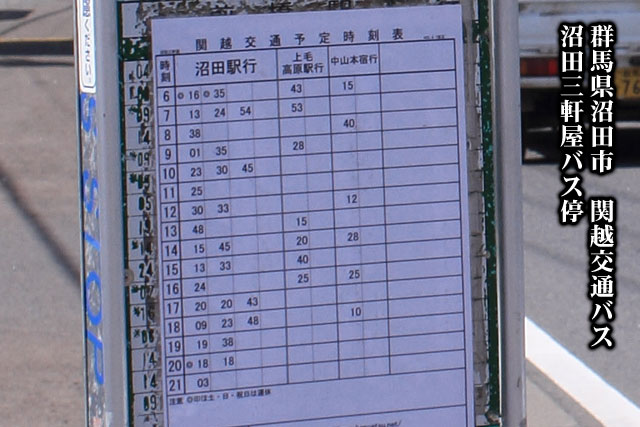 群馬県沼田市 関越交通バス
沼田三軒屋バス停
関越交通予定時刻表
時刻 沼田駅行 上毛高原駅行 中山本宿行
6 ◎16 ◎35 43 15
7 13 24 54 53
8 38 40
9 01 35 28
10 23 30 45
11 25
12 30 33 12
13 48 15
14 15 45 20 28
15 13 33 40
16 24 25 25
17 20 20 43
18 09 23 48 10
19 19 38
20 ◎18 18
21 03
注意 ◎印は土・日・祝日は運休
ください。
STOP